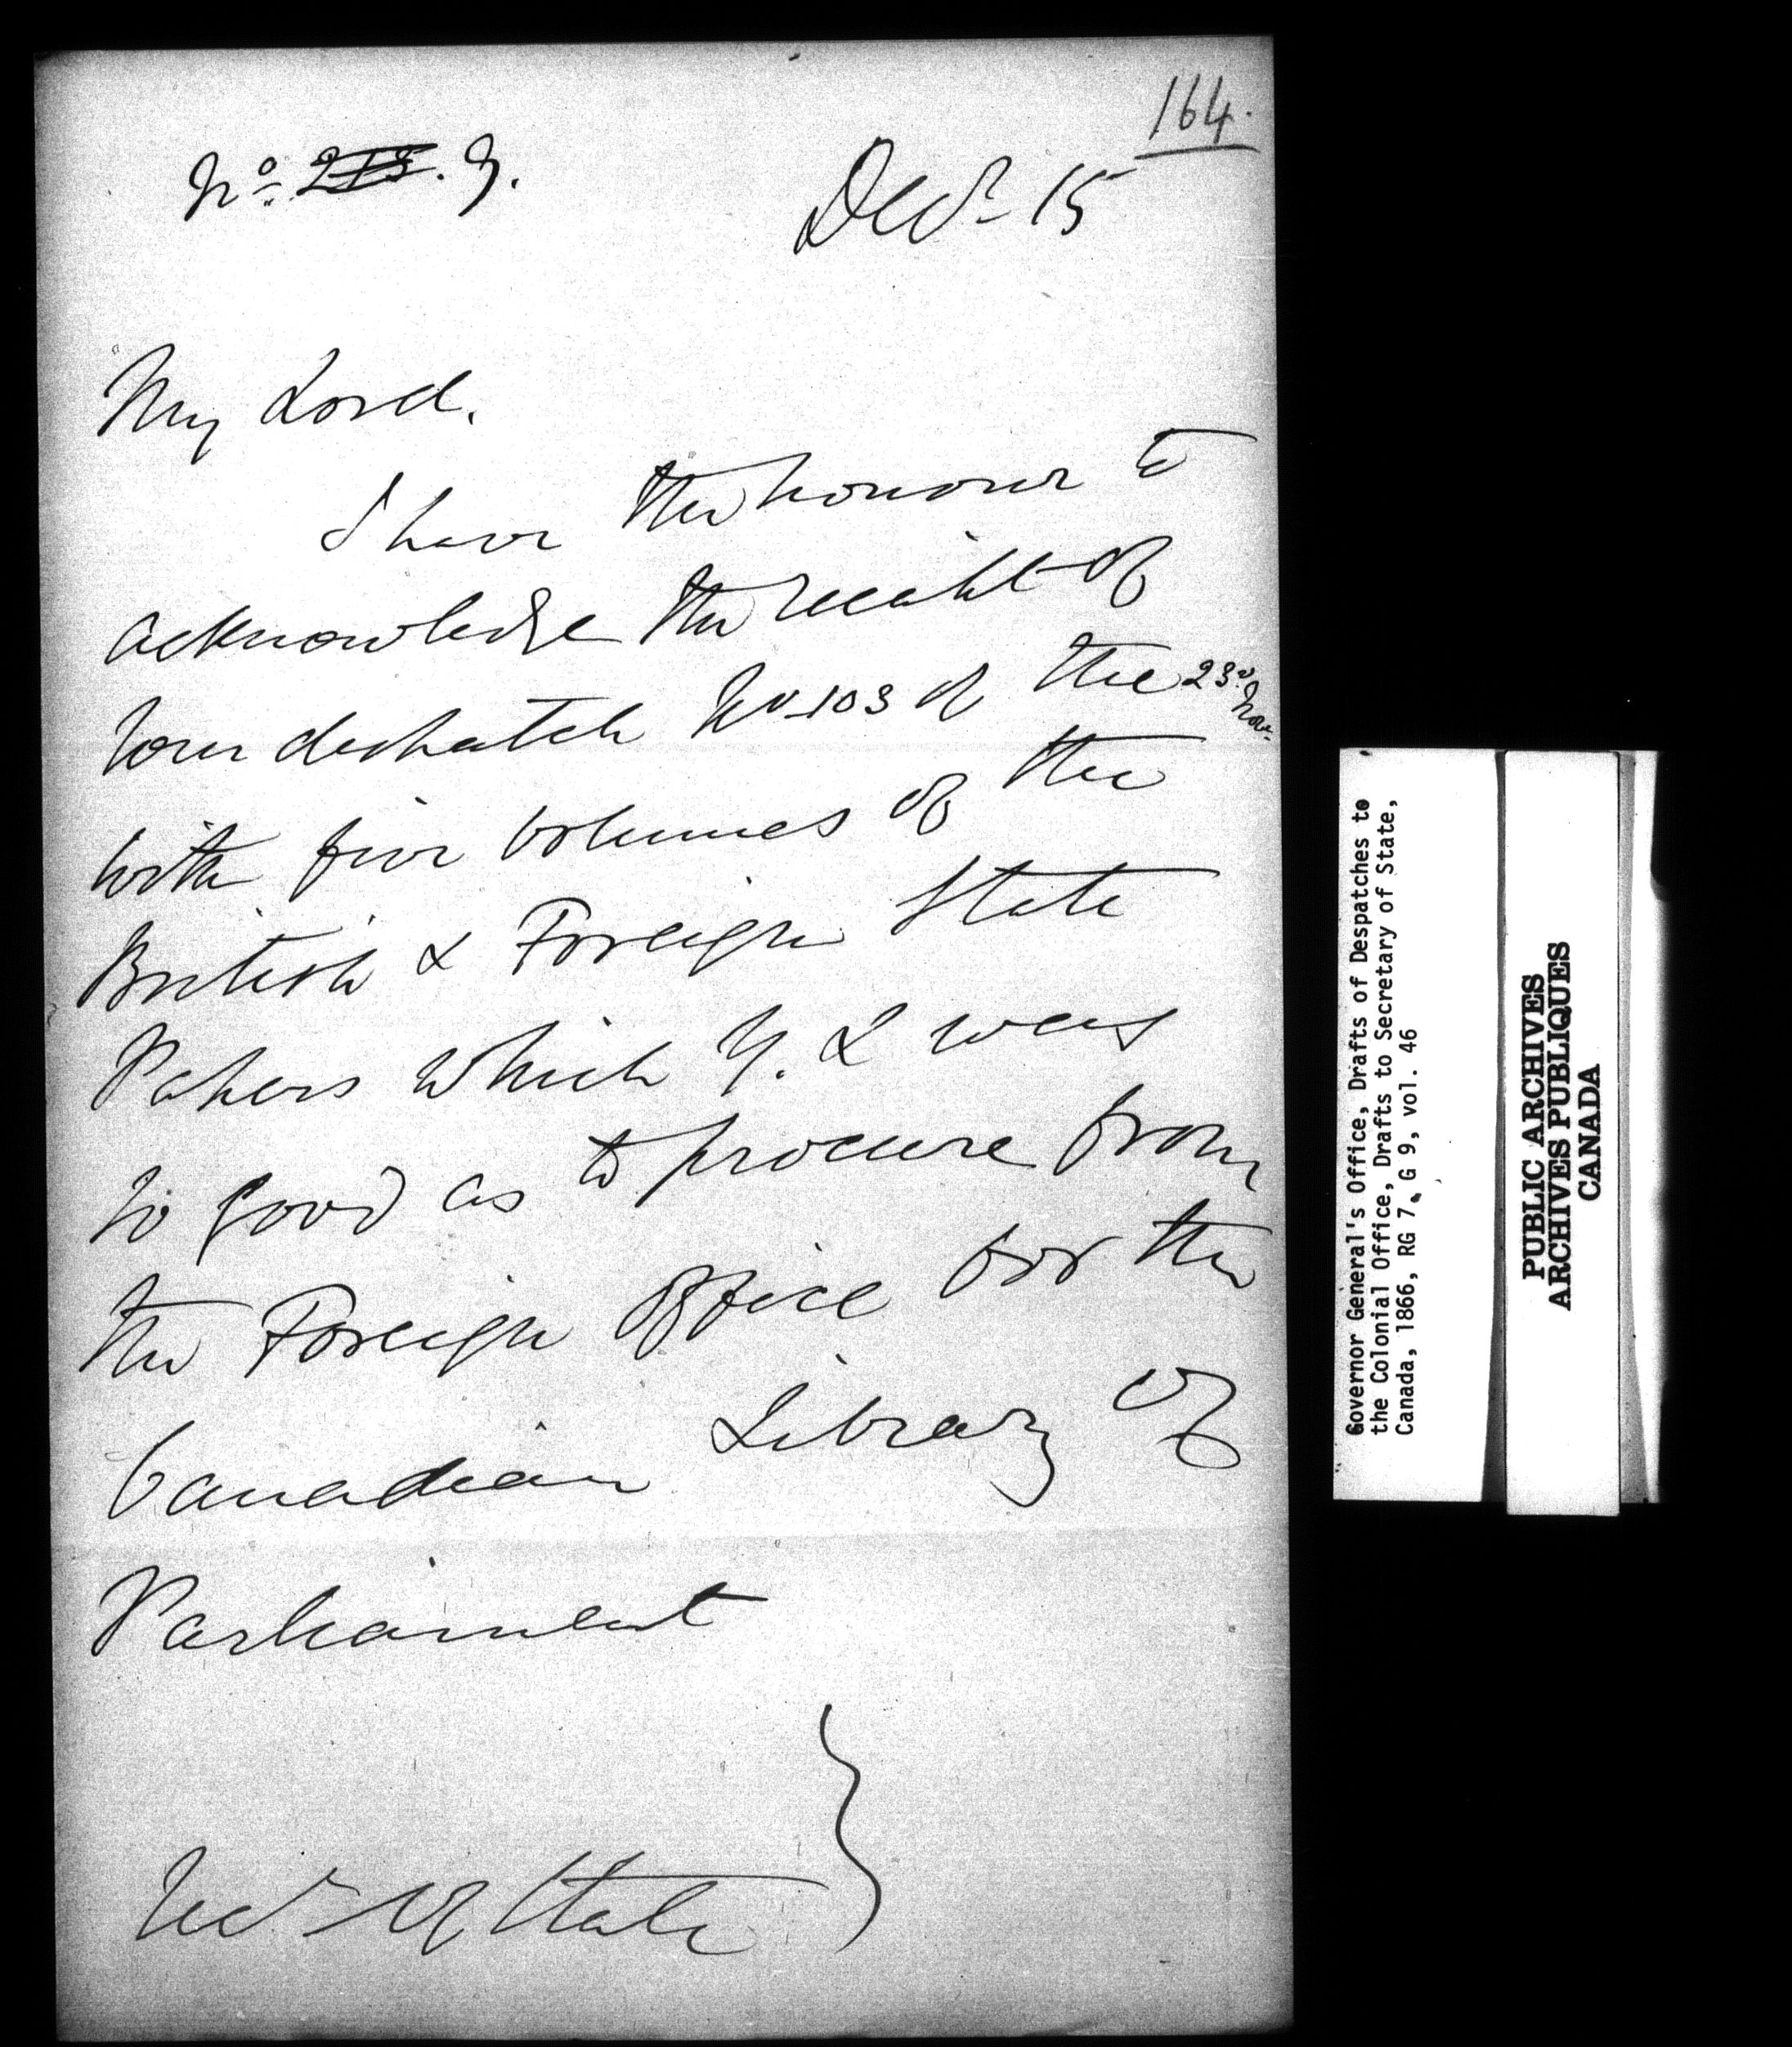 164.
No. 9.
Decr 15
My Lord.
I have the honour to
acknowledge the receipt of
Your despatch No 103 of the 23d Nov.
with five volumes of the
British & Foreign State
Papers which Y. L was
so good as to procure from
the Foreign Office for the
Canadian Library of
Parliament
Secr of State
Governor General's Office, Drafts of Despatches to
the Colonial Office, Drafts to Secretary of State,
Canada, 1866, RG 7, G 9, vol. 46
PUBLIC ARCHIVES
ARCHIVES PUBLIQUES
CANADA